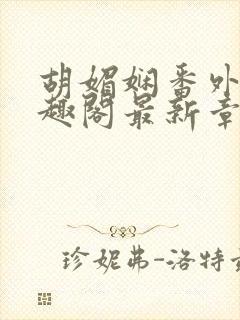 胡媚娴番外
趣阁最新章
珍妮弗-洛特